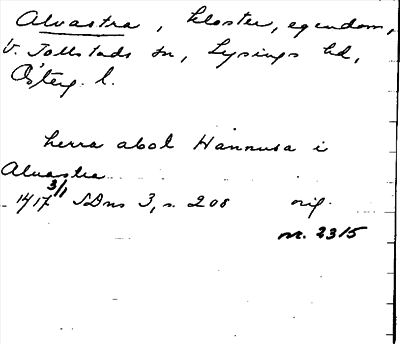 Alvastra, kloster, egendom,
V. Tollstads sn, Lysings hd,
Österg. l.
herra abol Hannusa i
Alvastra
1417 3/1 SDns 3, s. 208 orig.
nr. 2315